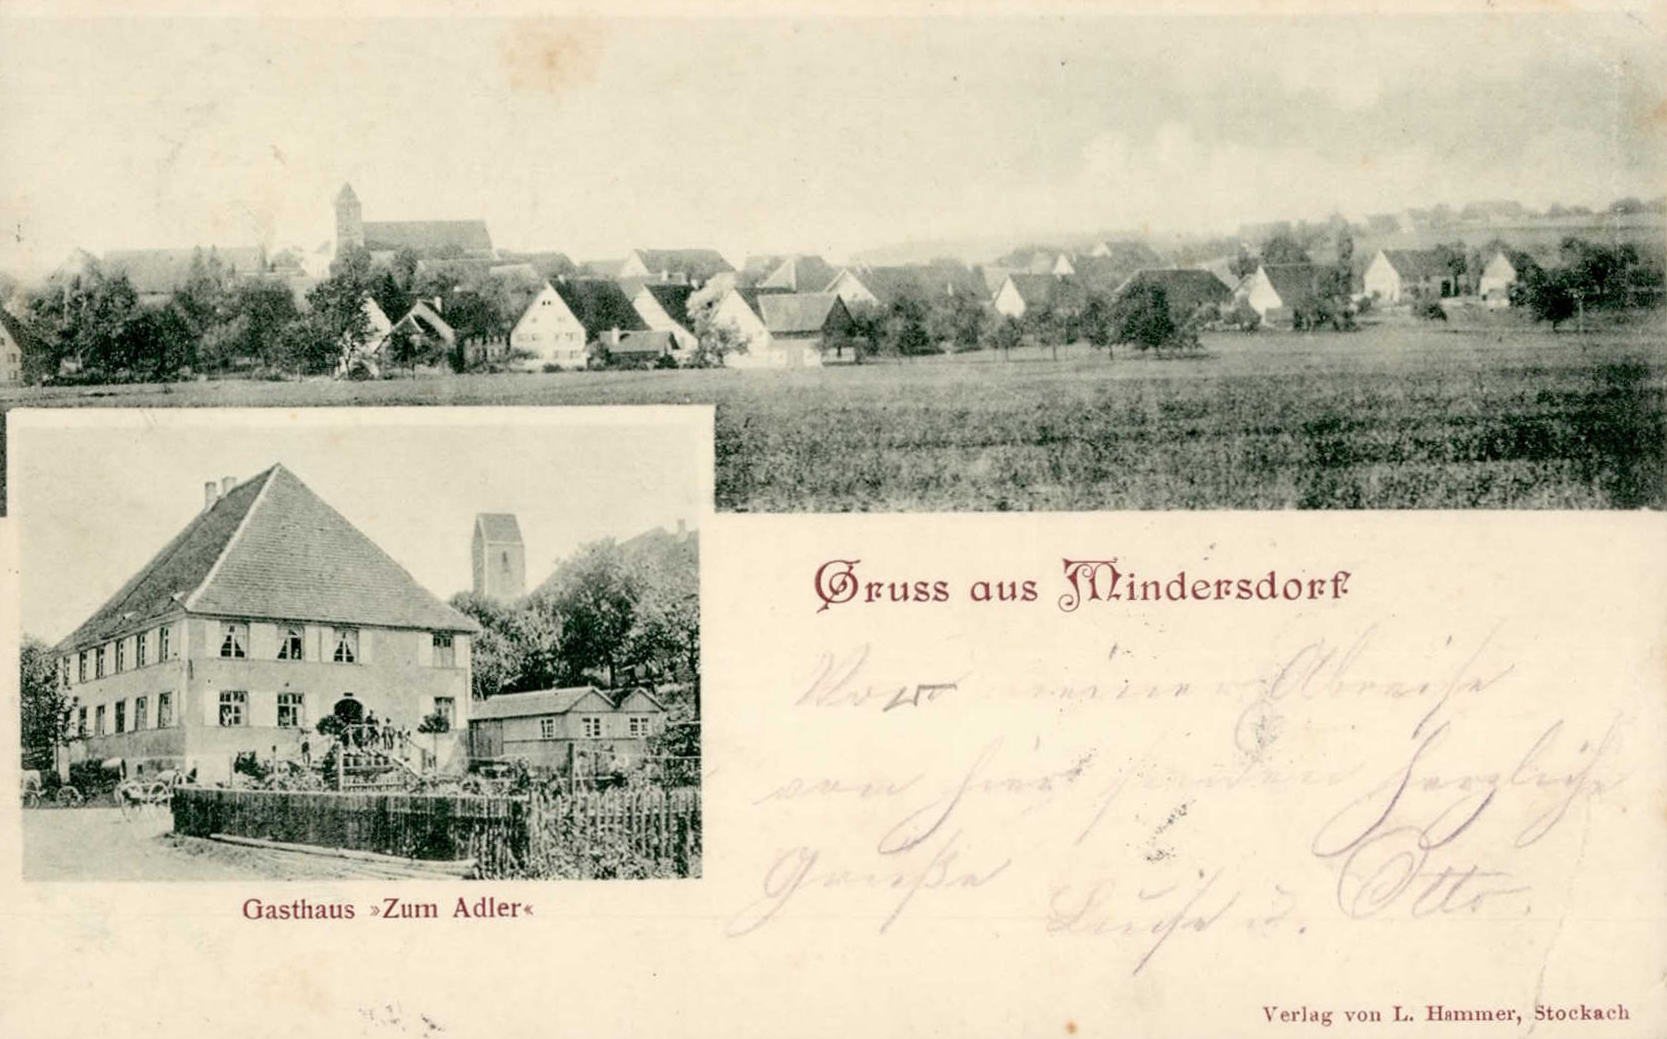 Gruss aus Mindersdorf
Vor meiner Abreise
von hier senden herzliche
Grüße
u. Otto.
Gasthaus »Zum Adler«
Verlag von L. Hammer, Stockach